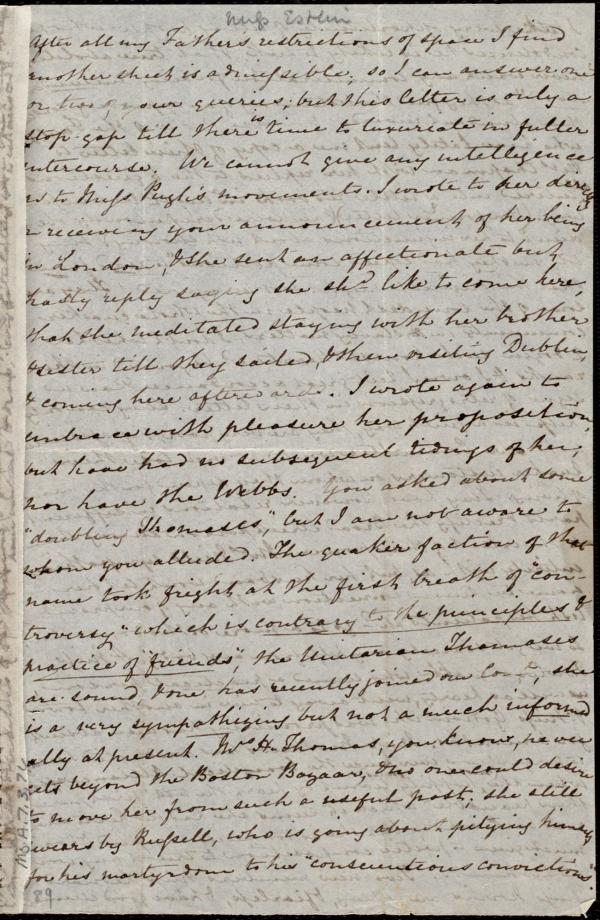 Miss Estlin
After all my Father's restrictions of space I find
another sheet is admissible, so I can answer one
or two of your queries; but this letter is only a
stop-gap till there is time to luxuriate in fuller
intercourse. We cannot give any intelligence
as to Miss Pugh's movements. I wrote to her directly
on receiving your announcement of her being
in London, & she sent an affectionate but
hasty reply saying she shd. like to come here,
that she meditated staying with her brother
& sister till they sailed, & then visiting Dublin,
& coming here afterwards. I wrote again to
embrace with pleasure her proposition,
but have had no subsequent tidings of her,
nor have the Webbs. You asked about some
"doubting Thomases", but I am not aware to
whom you alluded. The quaker faction of that
name took fright at the first breath of "con-
troversy" which is contrary to the principles &
practice of "friends", the Unitarian Thomases
are sound, & one has recently joined our Comtee, she
is a very sympathizing but not a much informed
ally at present. Mrs H. Thomas, you know, never
gets beyond the Boston Bazaar, & no one could desire
to move her from such a useful post; she still
swears by Russell, who is going about pitying himself
for his martyrdom to his "conscientious convictions".
Ms.A.7.3.76
89